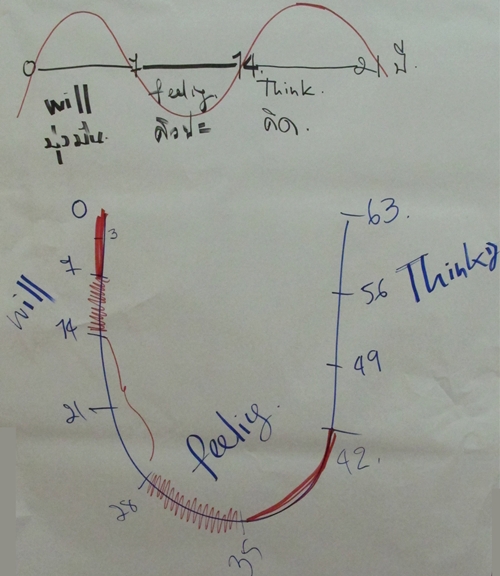 0 7 14 21 ปี
will feeling Think.
มุ่งมั่น ศิลปะ คิด.
0
3
7
14
21
28
35
42.
49
56
63.
will
feeling.
Thinking